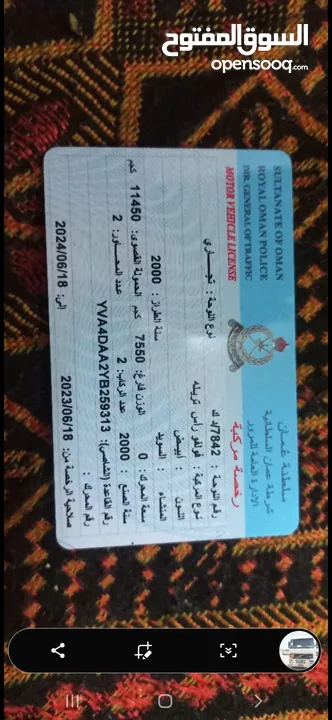 السوق المفتوح
opensooq.com
SULTANATE OF OMAN
ROYAL OMAN POLICE
DIR. GENERAL OF TRAFFIC
MOTOR VEHICLE LICENSE
سلطنة عمان
شرطة عمان السلطانية
الإدارة العامة للمرور
رخصة مركبة
رقم اللوحة : 7842/د ك
نوع اللوحة : تجاري
نوع المركبة : فولفو رأس تريله
اللون : أبيض
المنشاء : السويد
سنة الطراز : 2000
سعة المحرك : 0
الوزن فارغ: 7550 كجم
الحمولة القصوى: 11450 كجم
سنة الصنع : 2000
عدد الركاب: 2
عدد المحاور : 2
رقم القاعدة (الشاصي): YVA4DAA2YB259313
رقم المحرك :
صلاحية الرخصة من: 2023/06/18
إلى: 2024/06/18